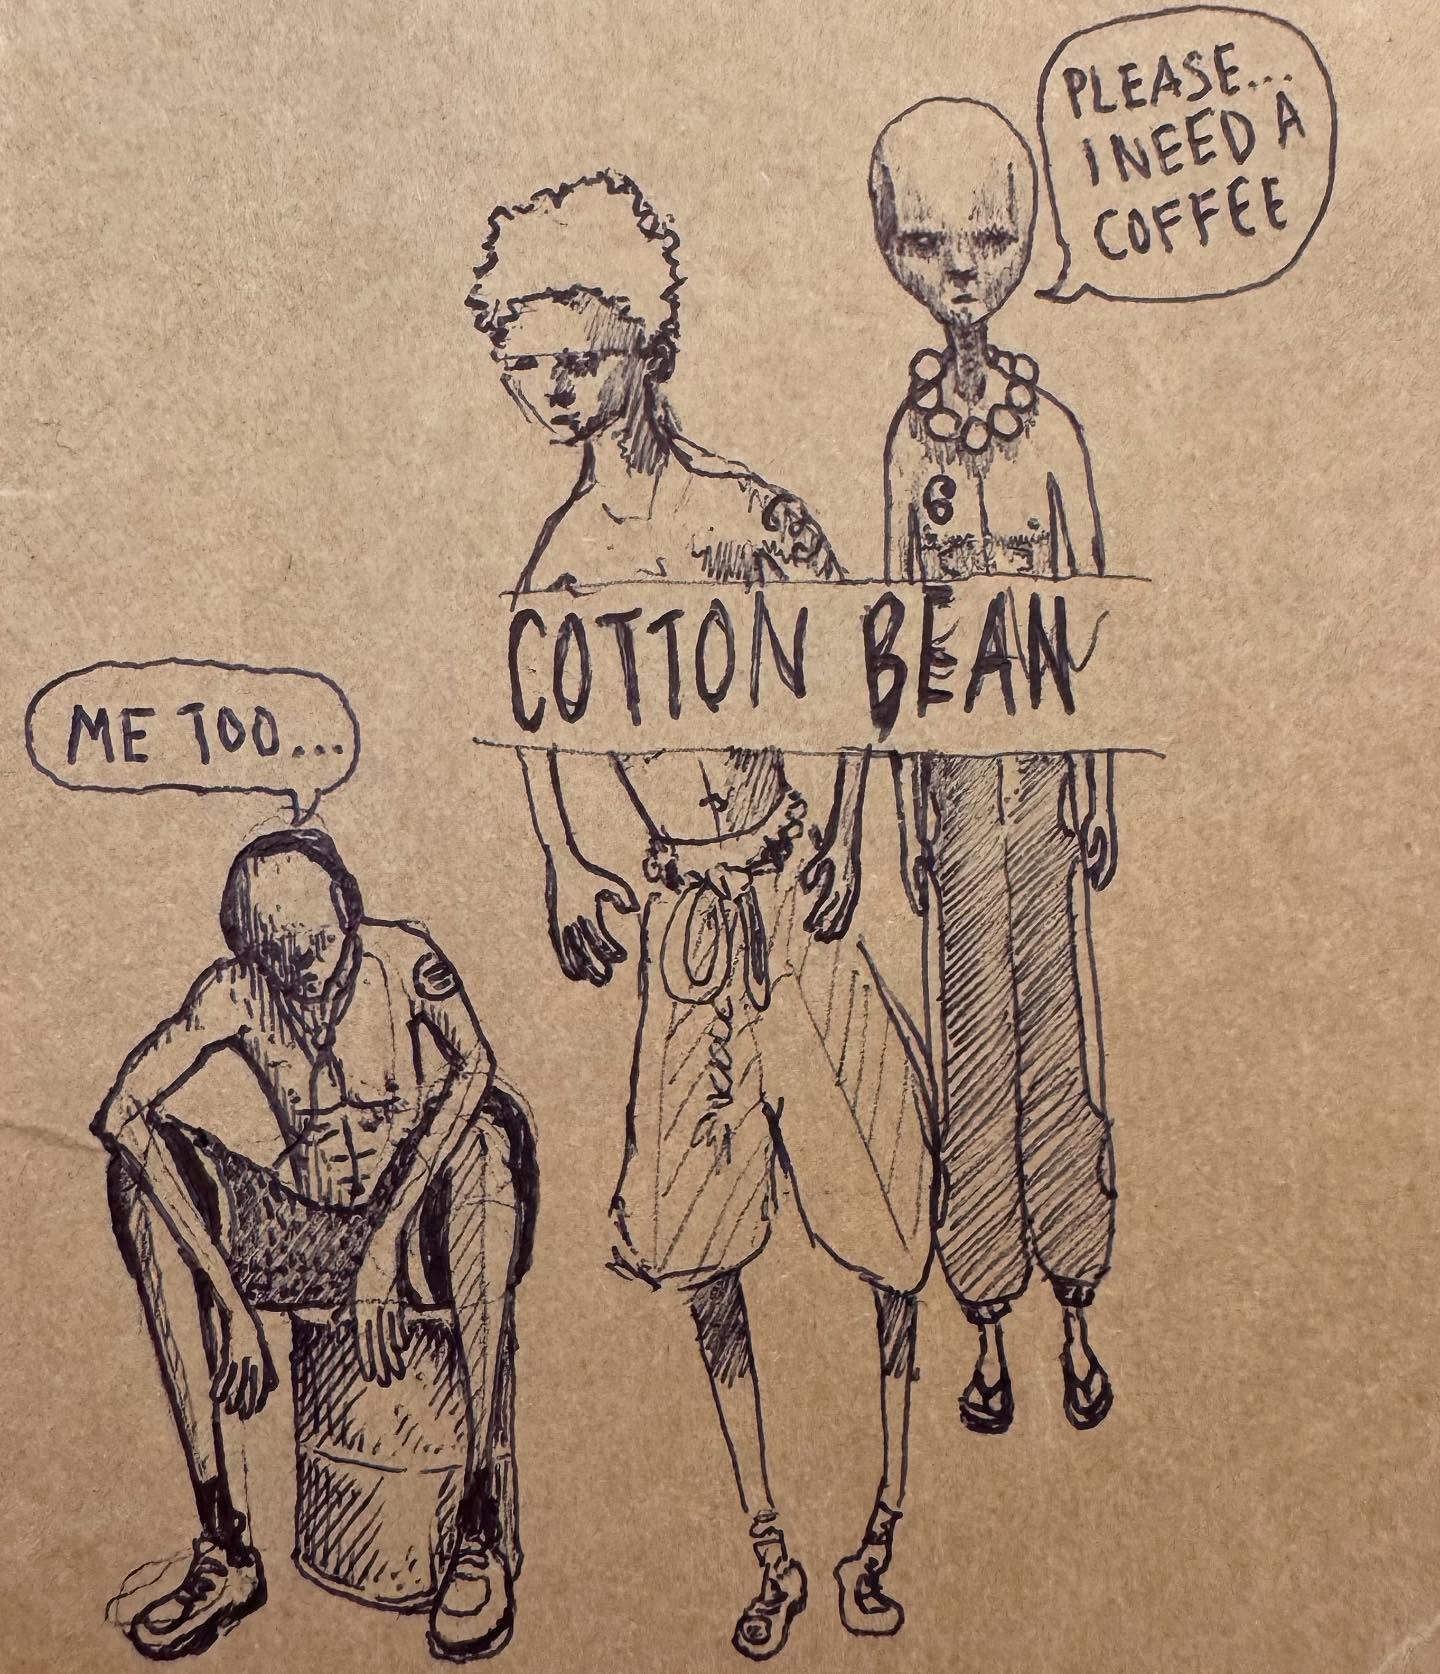 PLEASE...
I NEED A
COFFEE
6
COTTON BEAN
ME TOO...